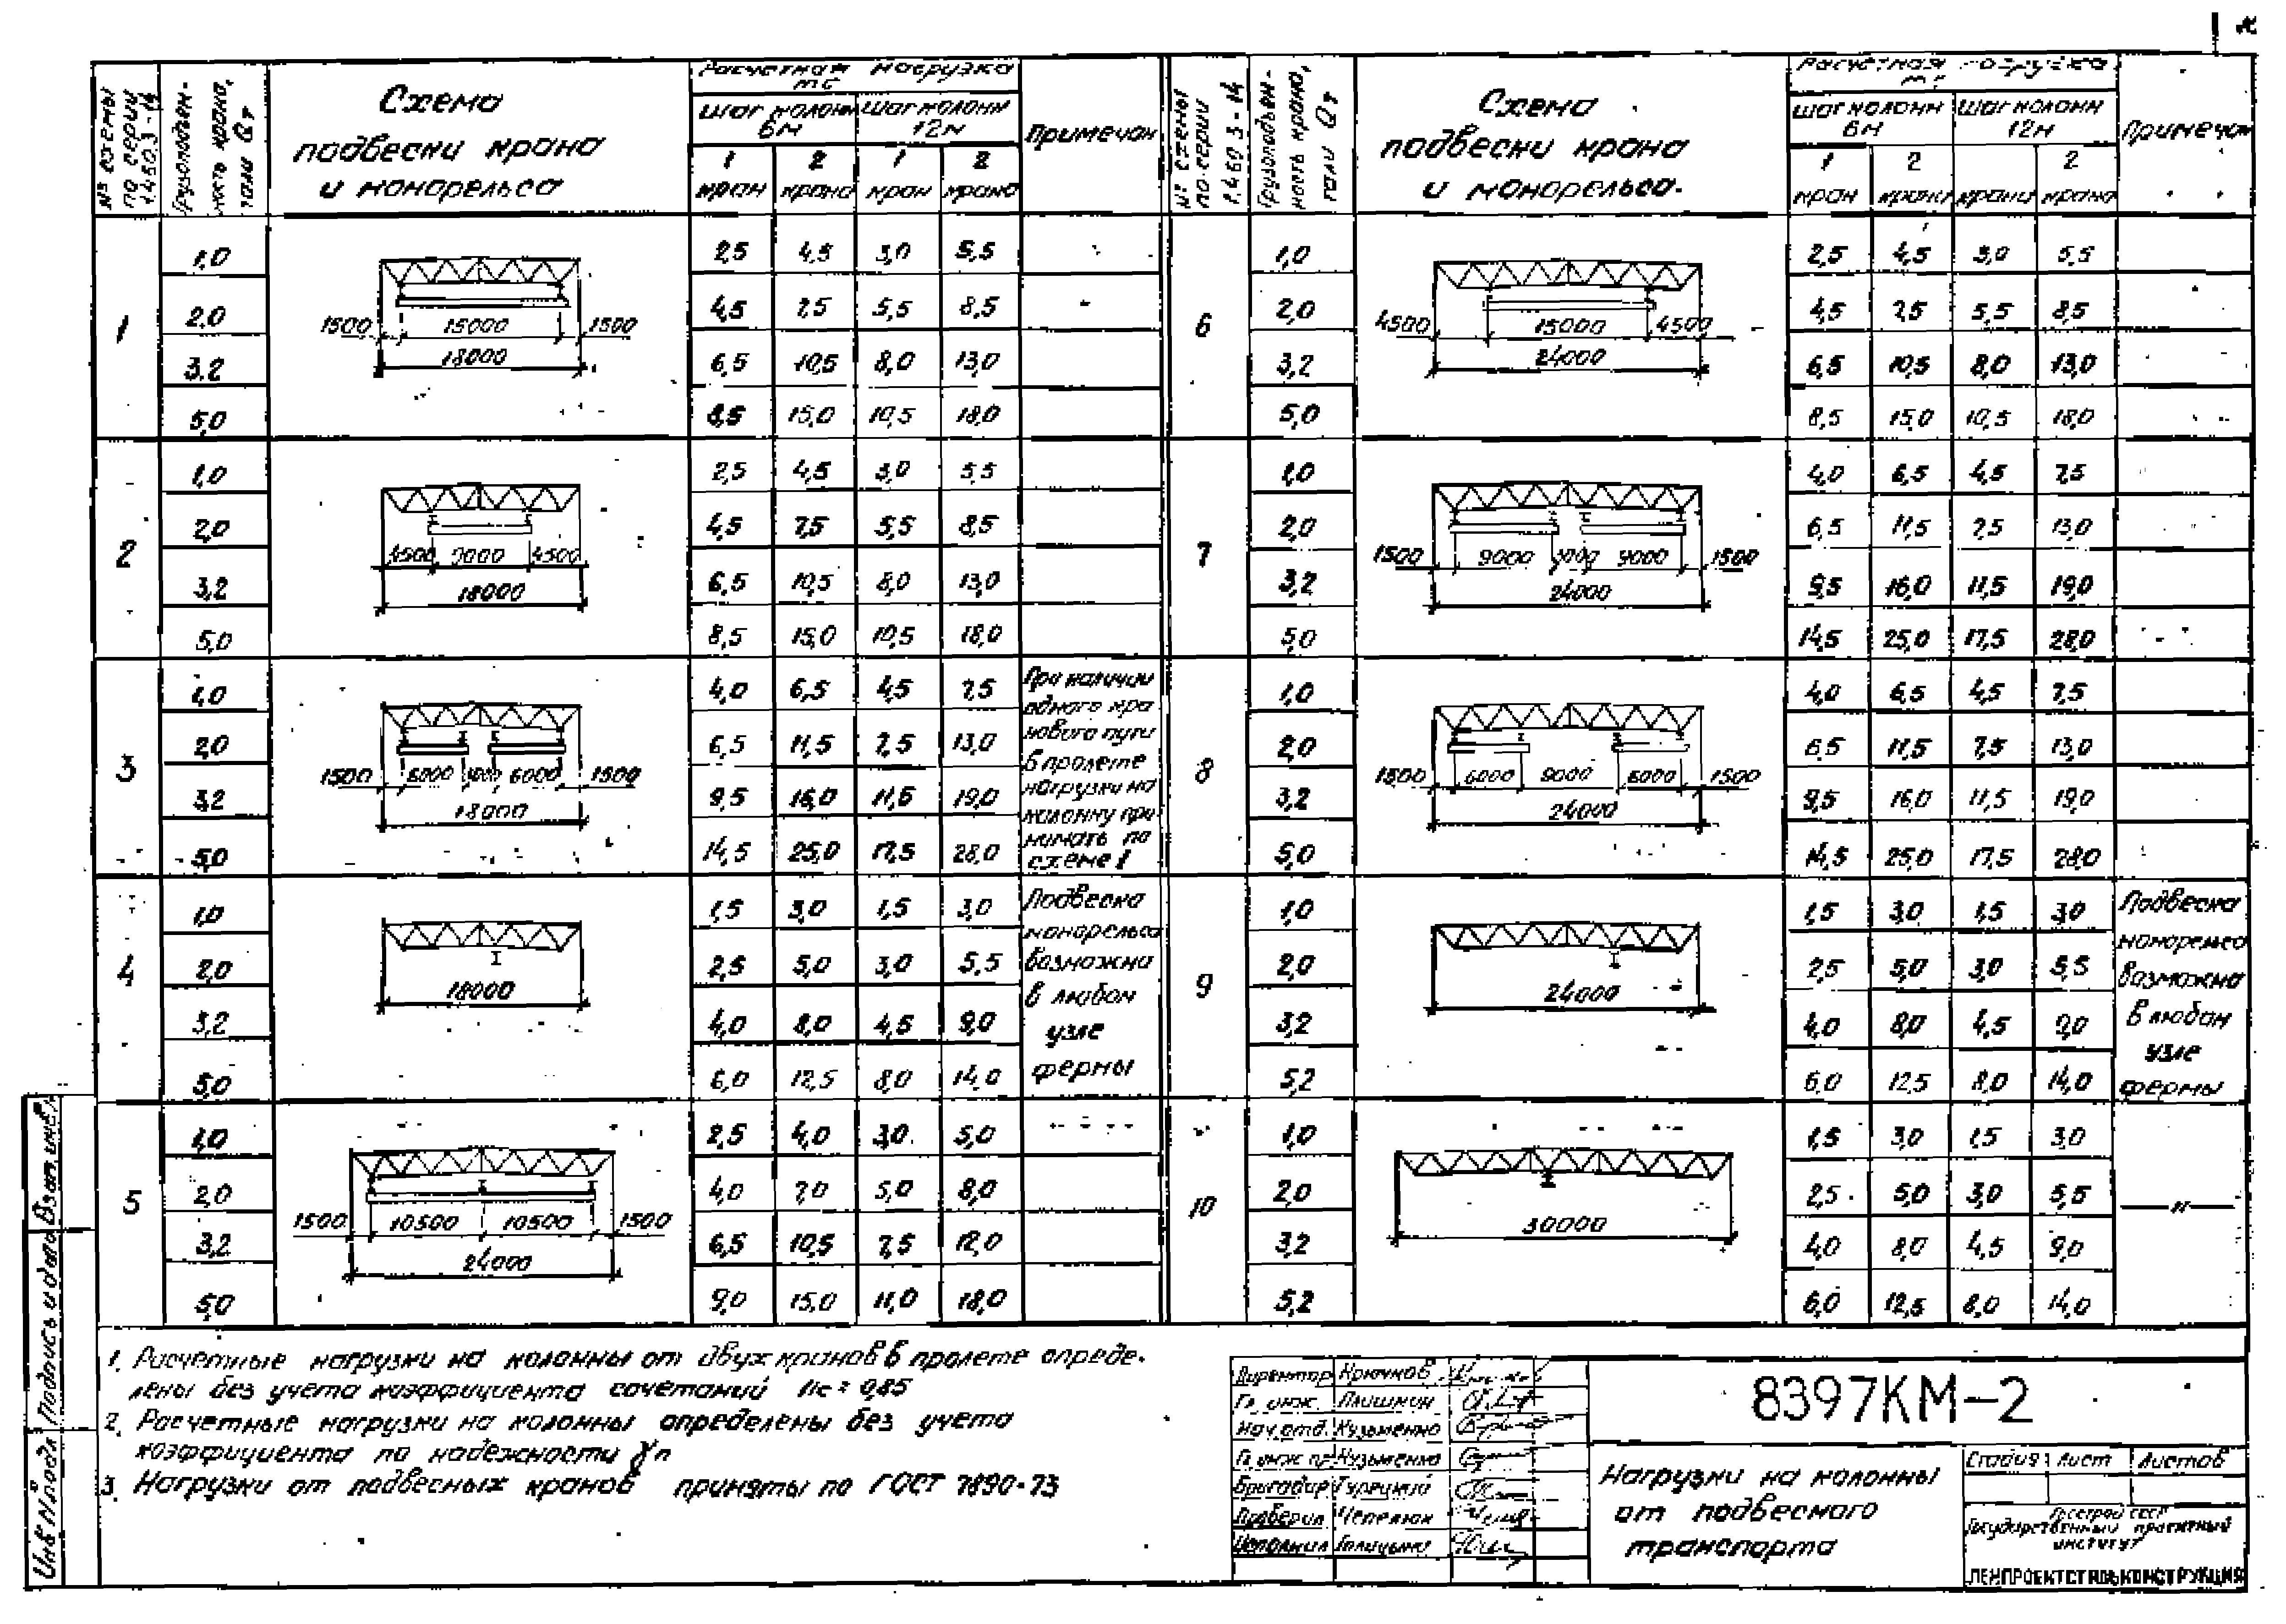 № схемы по серии 1.450.3-14
Грузоподъемность крана, тали Qт
Схема подвески крана и монорельса
Расчетная нагрузка тс
Шаг колонн 6м
Шаг колонн 12м
1 кран
2 крана
1 кран
2 крана
Примечан
1
1,0 2,5 4,5 3,0 5,5
2,0 4,5 7,5 5,5 8,5
3,2 6,5 10,5 8,0 13,0
5,0 8,5 15,0 10,5 18,0
1500 15000 1500
18000
2
1,0 2,5 4,5 3,0 5,5
2,0 4,5 7,5 5,5 8,5
3,2 6,5 10,5 8,0 13,0
5,0 8,5 15,0 10,5 18,0
4500 9000 4500
18000
3
1,0 4,0 6,5 4,5 7,5
2,0 6,5 11,5 7,5 13,0
3,2 9,5 16,0 11,5 19,0
5,0 14,5 25,0 17,5 28,0
1500 6000 3000 6000 1500
18000
При наличии
одного кра
нового пути
в пролете
нагрузки на
колонну при
нимать по
схеме 1
4
1,0 1,5 3,0 1,5 3,0
2,0 2,5 5,0 3,0 5,5
3,2 4,0 8,0 4,5 9,0
5,0 6,0 12,5 8,0 14,0
18000
Подвеска
монорельса
возможна
в любом
узле
фермы
5
1,0 2,5 4,0 3,0 5,0
2,0 4,0 7,0 5,0 8,0
3,2 6,5 10,5 7,5 12,0
5,0 9,0 15,0 11,0 18,0
1500 10500 10500 1500
24000
№ схемы по серии 1.460.3-14
Грузоподъемность крана, тали Qт
Схема подвески крана и монорельса.
Расчетная нагрузка тс
Шаг колонн 6м
Шаг колонн 12м
1 кран
2 крана
крана
2 крана
Примечан
6
1,0 2,5 4,5 3,0 5,5
2,0 4,5 7,5 5,5 8,5
3,2 6,5 10,5 8,0 13,0
5,0 8,5 15,0 10,5 18,0
4500 15000 4500
24000
7
1,0 4,0 6,5 4,5 7,5
2,0 6,5 11,5 7,5 13,0
3,2 9,5 16,0 11,5 19,0
5,0 14,5 25,0 17,5 28,0
1500 9000 3000 9000 1500
24000
8
1,0 4,0 6,5 4,5 7,5
2,0 6,5 11,5 7,5 13,0
3,2 9,5 16,0 11,5 19,0
5,0 14,5 25,0 17,5 28,0
1500 6000 9000 6000 1500
24000
9
1,0 1,5 3,0 1,5 3,0
2,0 2,5 5,0 3,0 5,5
3,2 4,0 8,0 4,5 9,0
5,2 6,0 12,5 8,0 14,0
24000
Подвеска
монорельса
возможна
в любом
узле
фермы
10
1,0 1,5 3,0 1,5 3,0
2,0 2,5 5,0 3,0 5,5
3,2 4,0 8,0 4,5 9,0
5,2 6,0 12,5 8,0 14,0
30000
—"—
1. Расчетные нагрузки на колонны от двух кранов в пролете опреде-
лены без учета коэффициента сочетаний nс = 0,85
2. Расчетные нагрузки на колонны определены без учета
коэффициента по надежности γn
3. Нагрузки от подвесных кранов приняты по ГОСТ 7890-73
Директор Крючков
Гл. инж. Плишкин
Нач. отд. Кузьменко
Гл. инж. пр. Кузьменко
Бригадир Гурецкий
Проверил Чепелюк
Исполнил
8397КМ-2
Нагрузки на колонны
от подвесного
транспорта
Стадия Лист Листов
Госстрой СССР
Государственный проектный
институт
ЛЕНПРОЕКТСТАЛЬКОНСТРУКЦИЯ
Инв № подл
Подпись и дата
Взам. инв.